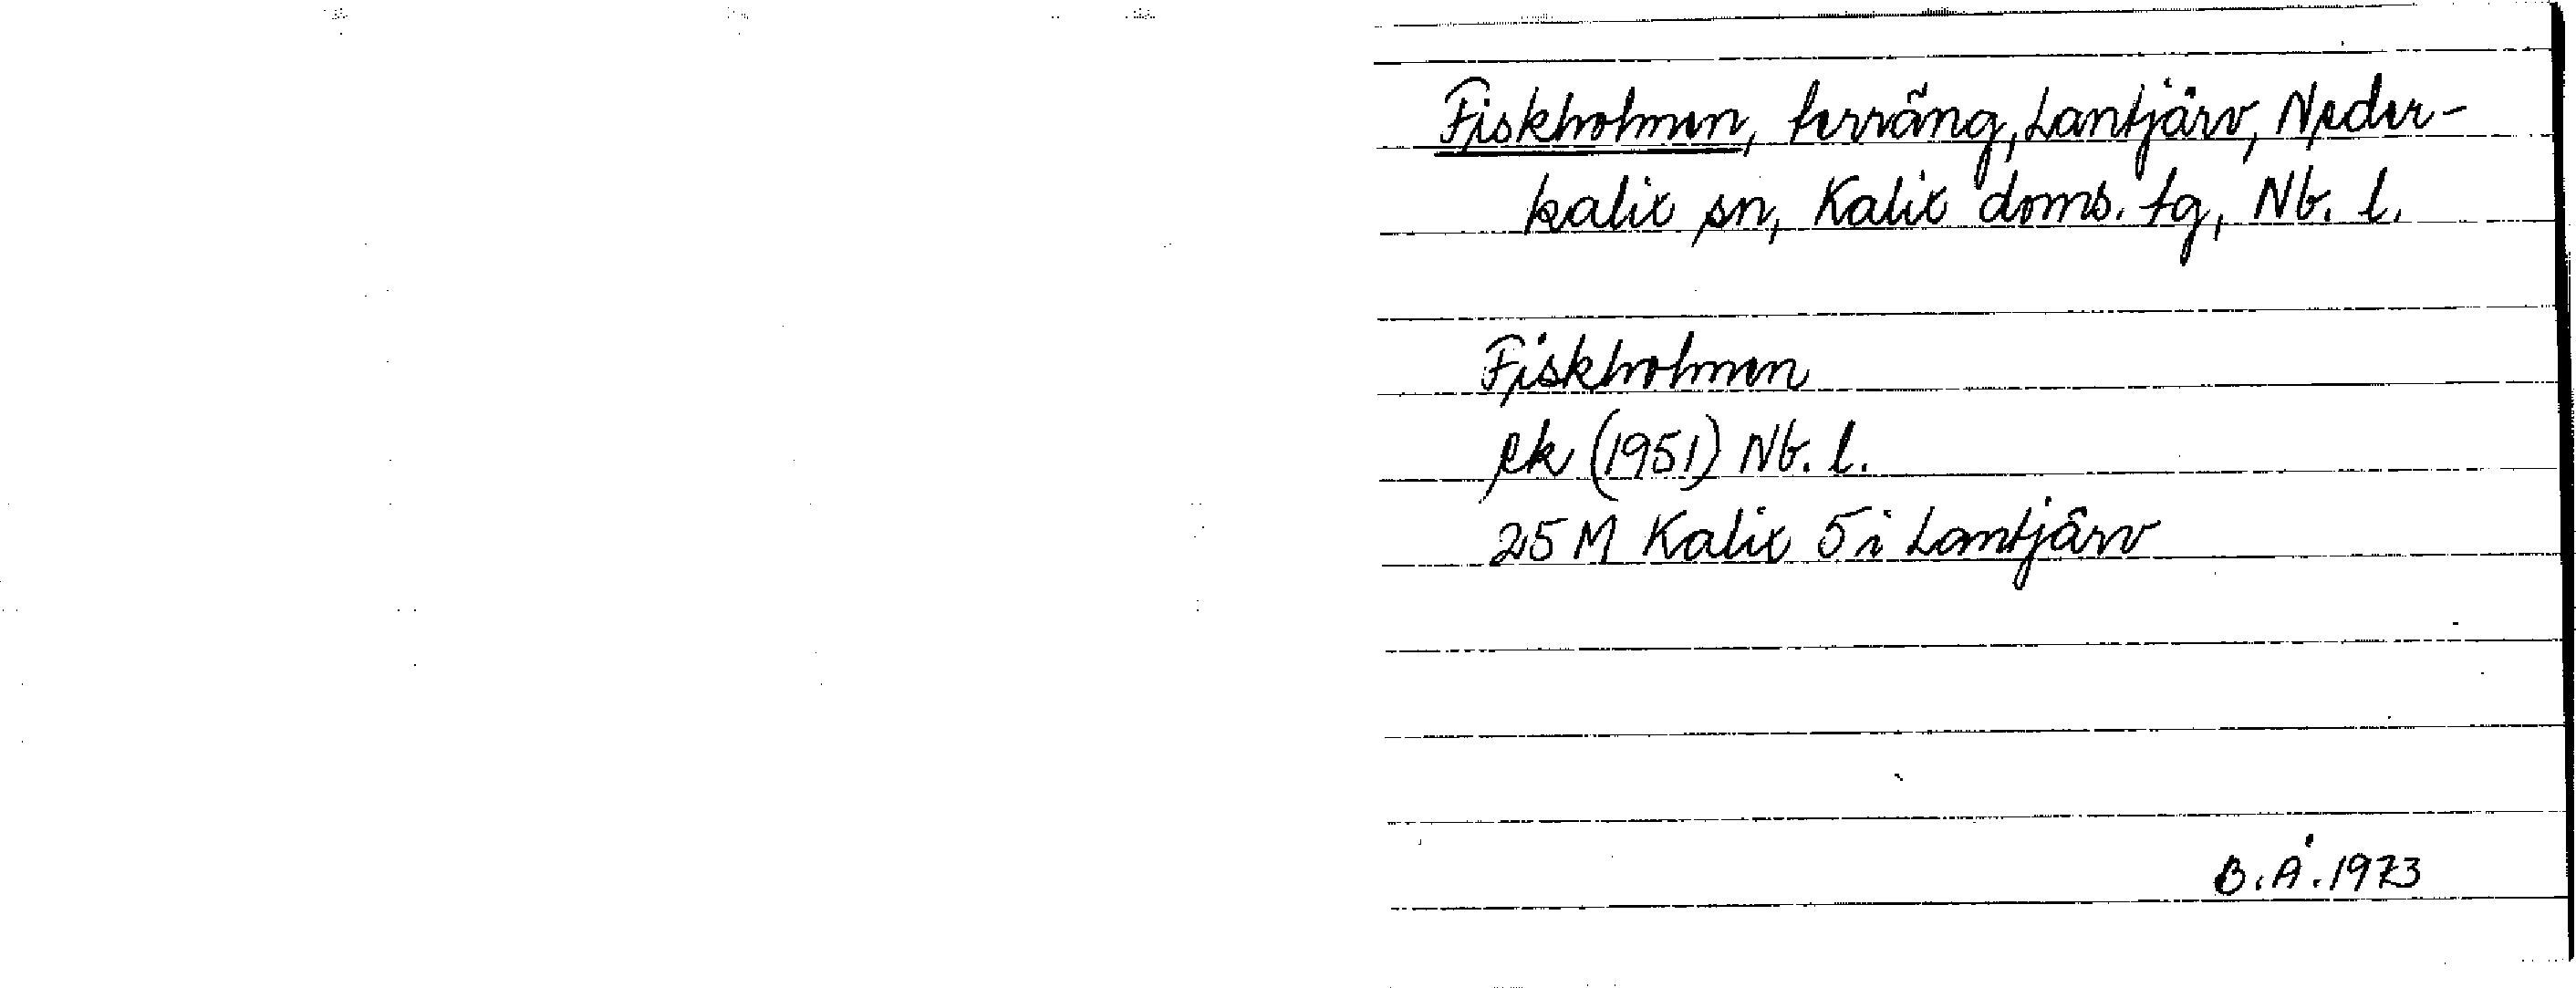 Fiskholmen, terräng, Lantjärv, Neder-
kalix sn, Kalix doms. tg, Nb. l.
Fiskholmen
ek (1951) Nb. l.
25 M Kalix 5 i Lantjärv
B. Å. 1973